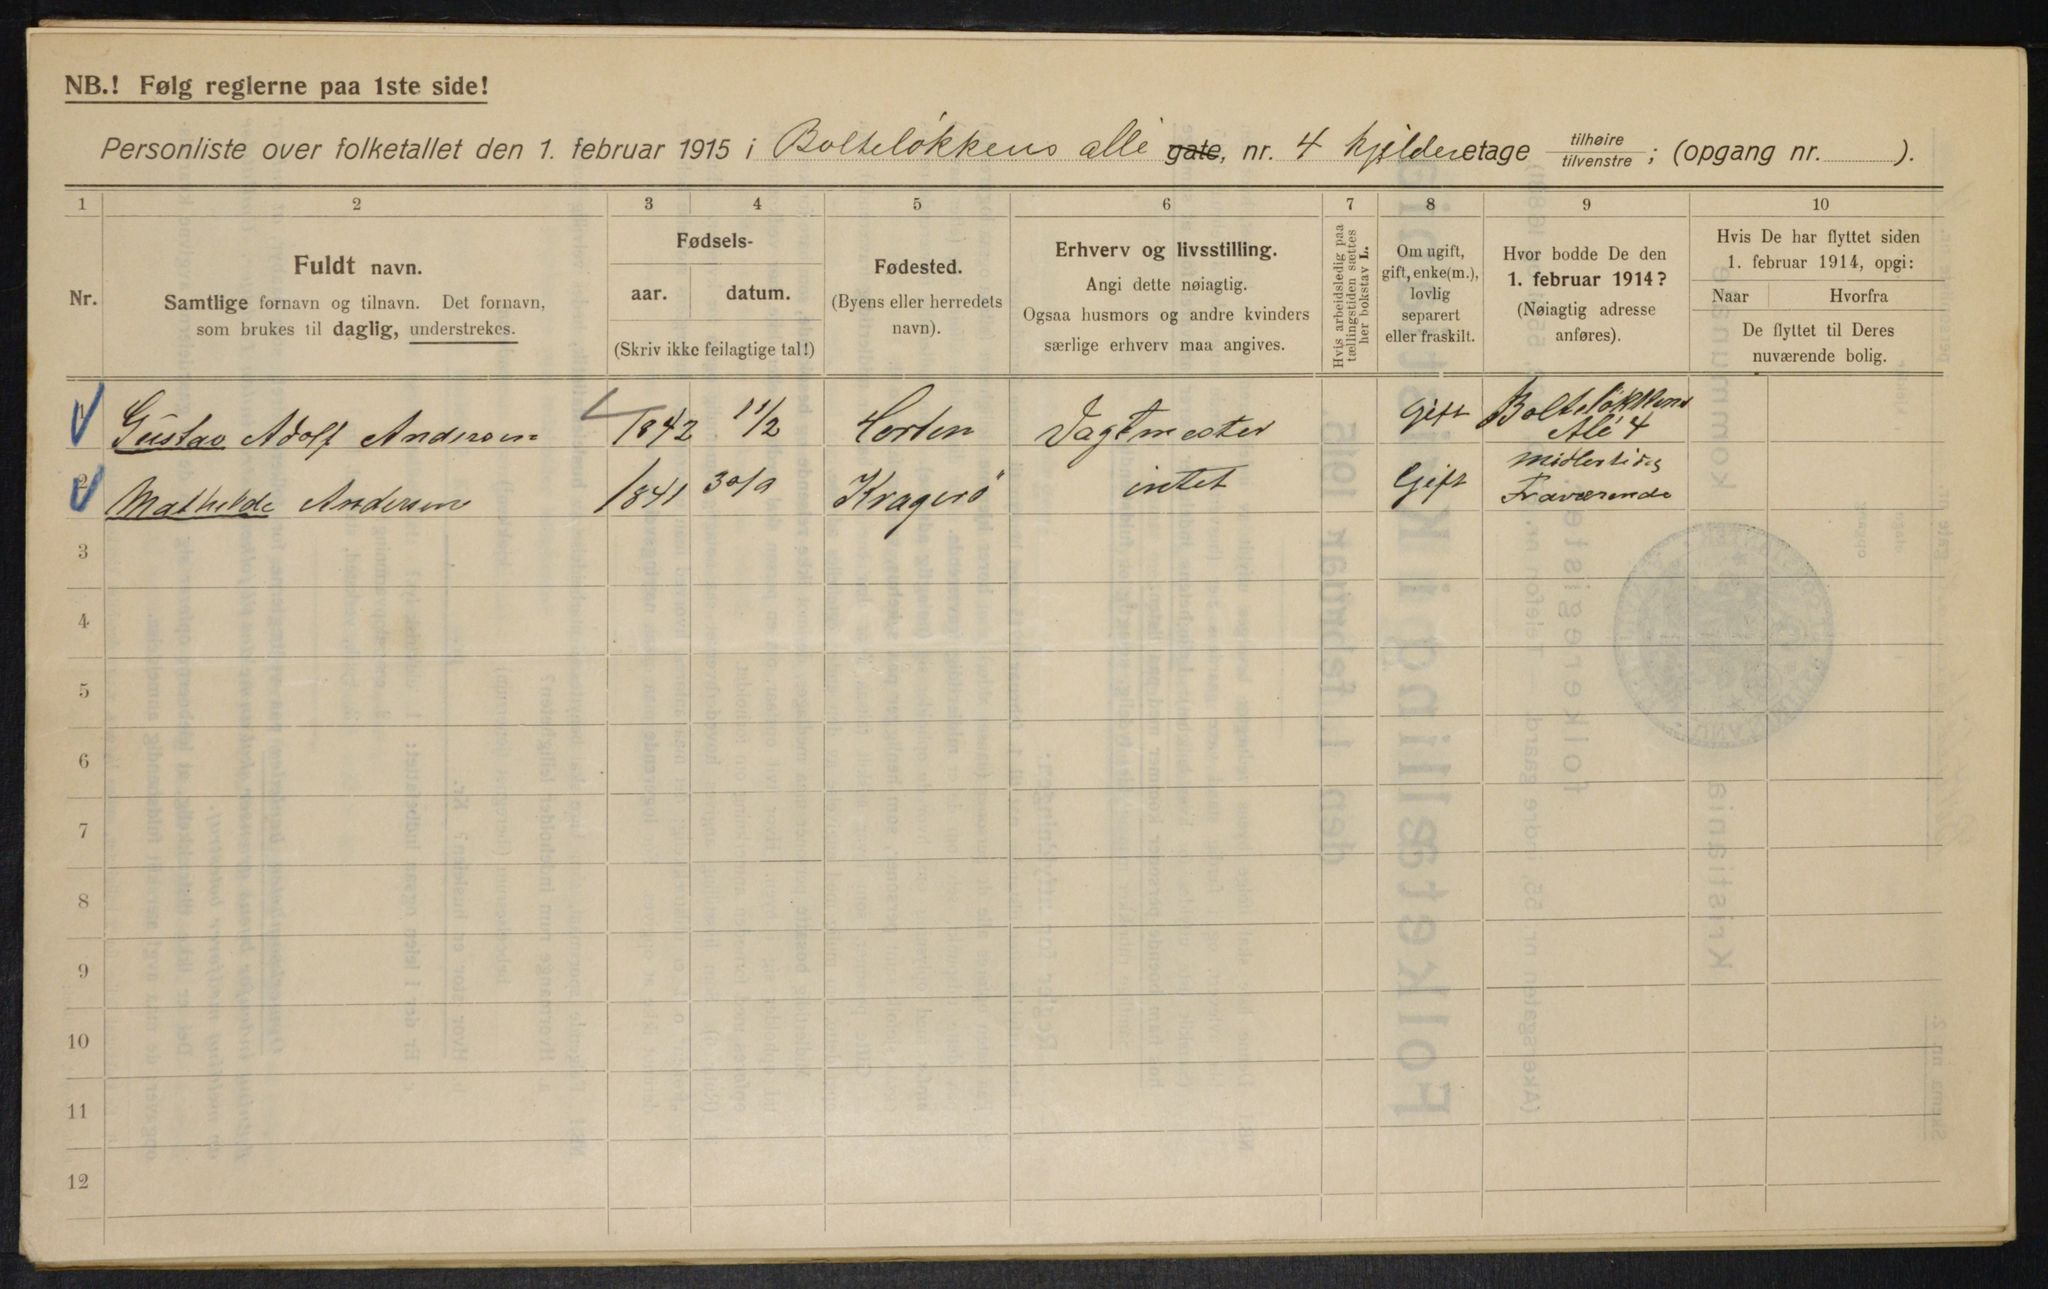 NB.! Følg reglerne paa 1ste side!
Personliste over folketallet den 1. februar 1915 i Bolteløkkens allé gate, nr. 4 kjelderetage tilhøire/tilvenstre; (opgang nr. ).
1 2 3 4 5 6 7 8 9 10
Nr.
Fuldt navn.
Samtlige fornavn og tilnavn. Det fornavn,
som brukes til daglig, understrekes.
Fødsels-
aar. datum.
(Skriv ikke feilagtige tal!)
Fødested.
(Byens eller herredets
navn).
Erhverv og livsstilling.
Angi dette nøiagtig.
Ogsaa husmors og andre kvinders
særlige erhverv maa angives.
Hvis arbeidsledig paa
tællingstiden sættes
her bokstav L.
Om ugift,
gift, enke(m.),
lovlig
separert
eller fraskilt.
Hvor bodde De den
1. februar 1914?
(Nøiagtig adresse
anføres).
Hvis De har flyttet siden
1. februar 1914, opgi:
Naar Hvorfra
De flyttet til Deres
nuværende bolig.
1 Gustav Adolf Andersen 1842 11/2 Horten Jagtmester Gift Bolteløkkens
Alé 4
2 Mathilde Andersen 1841 30/9 Kragerö intet Gift Midlertidig
Fraværende
3
4
5
6
7
8
9
10
11
12